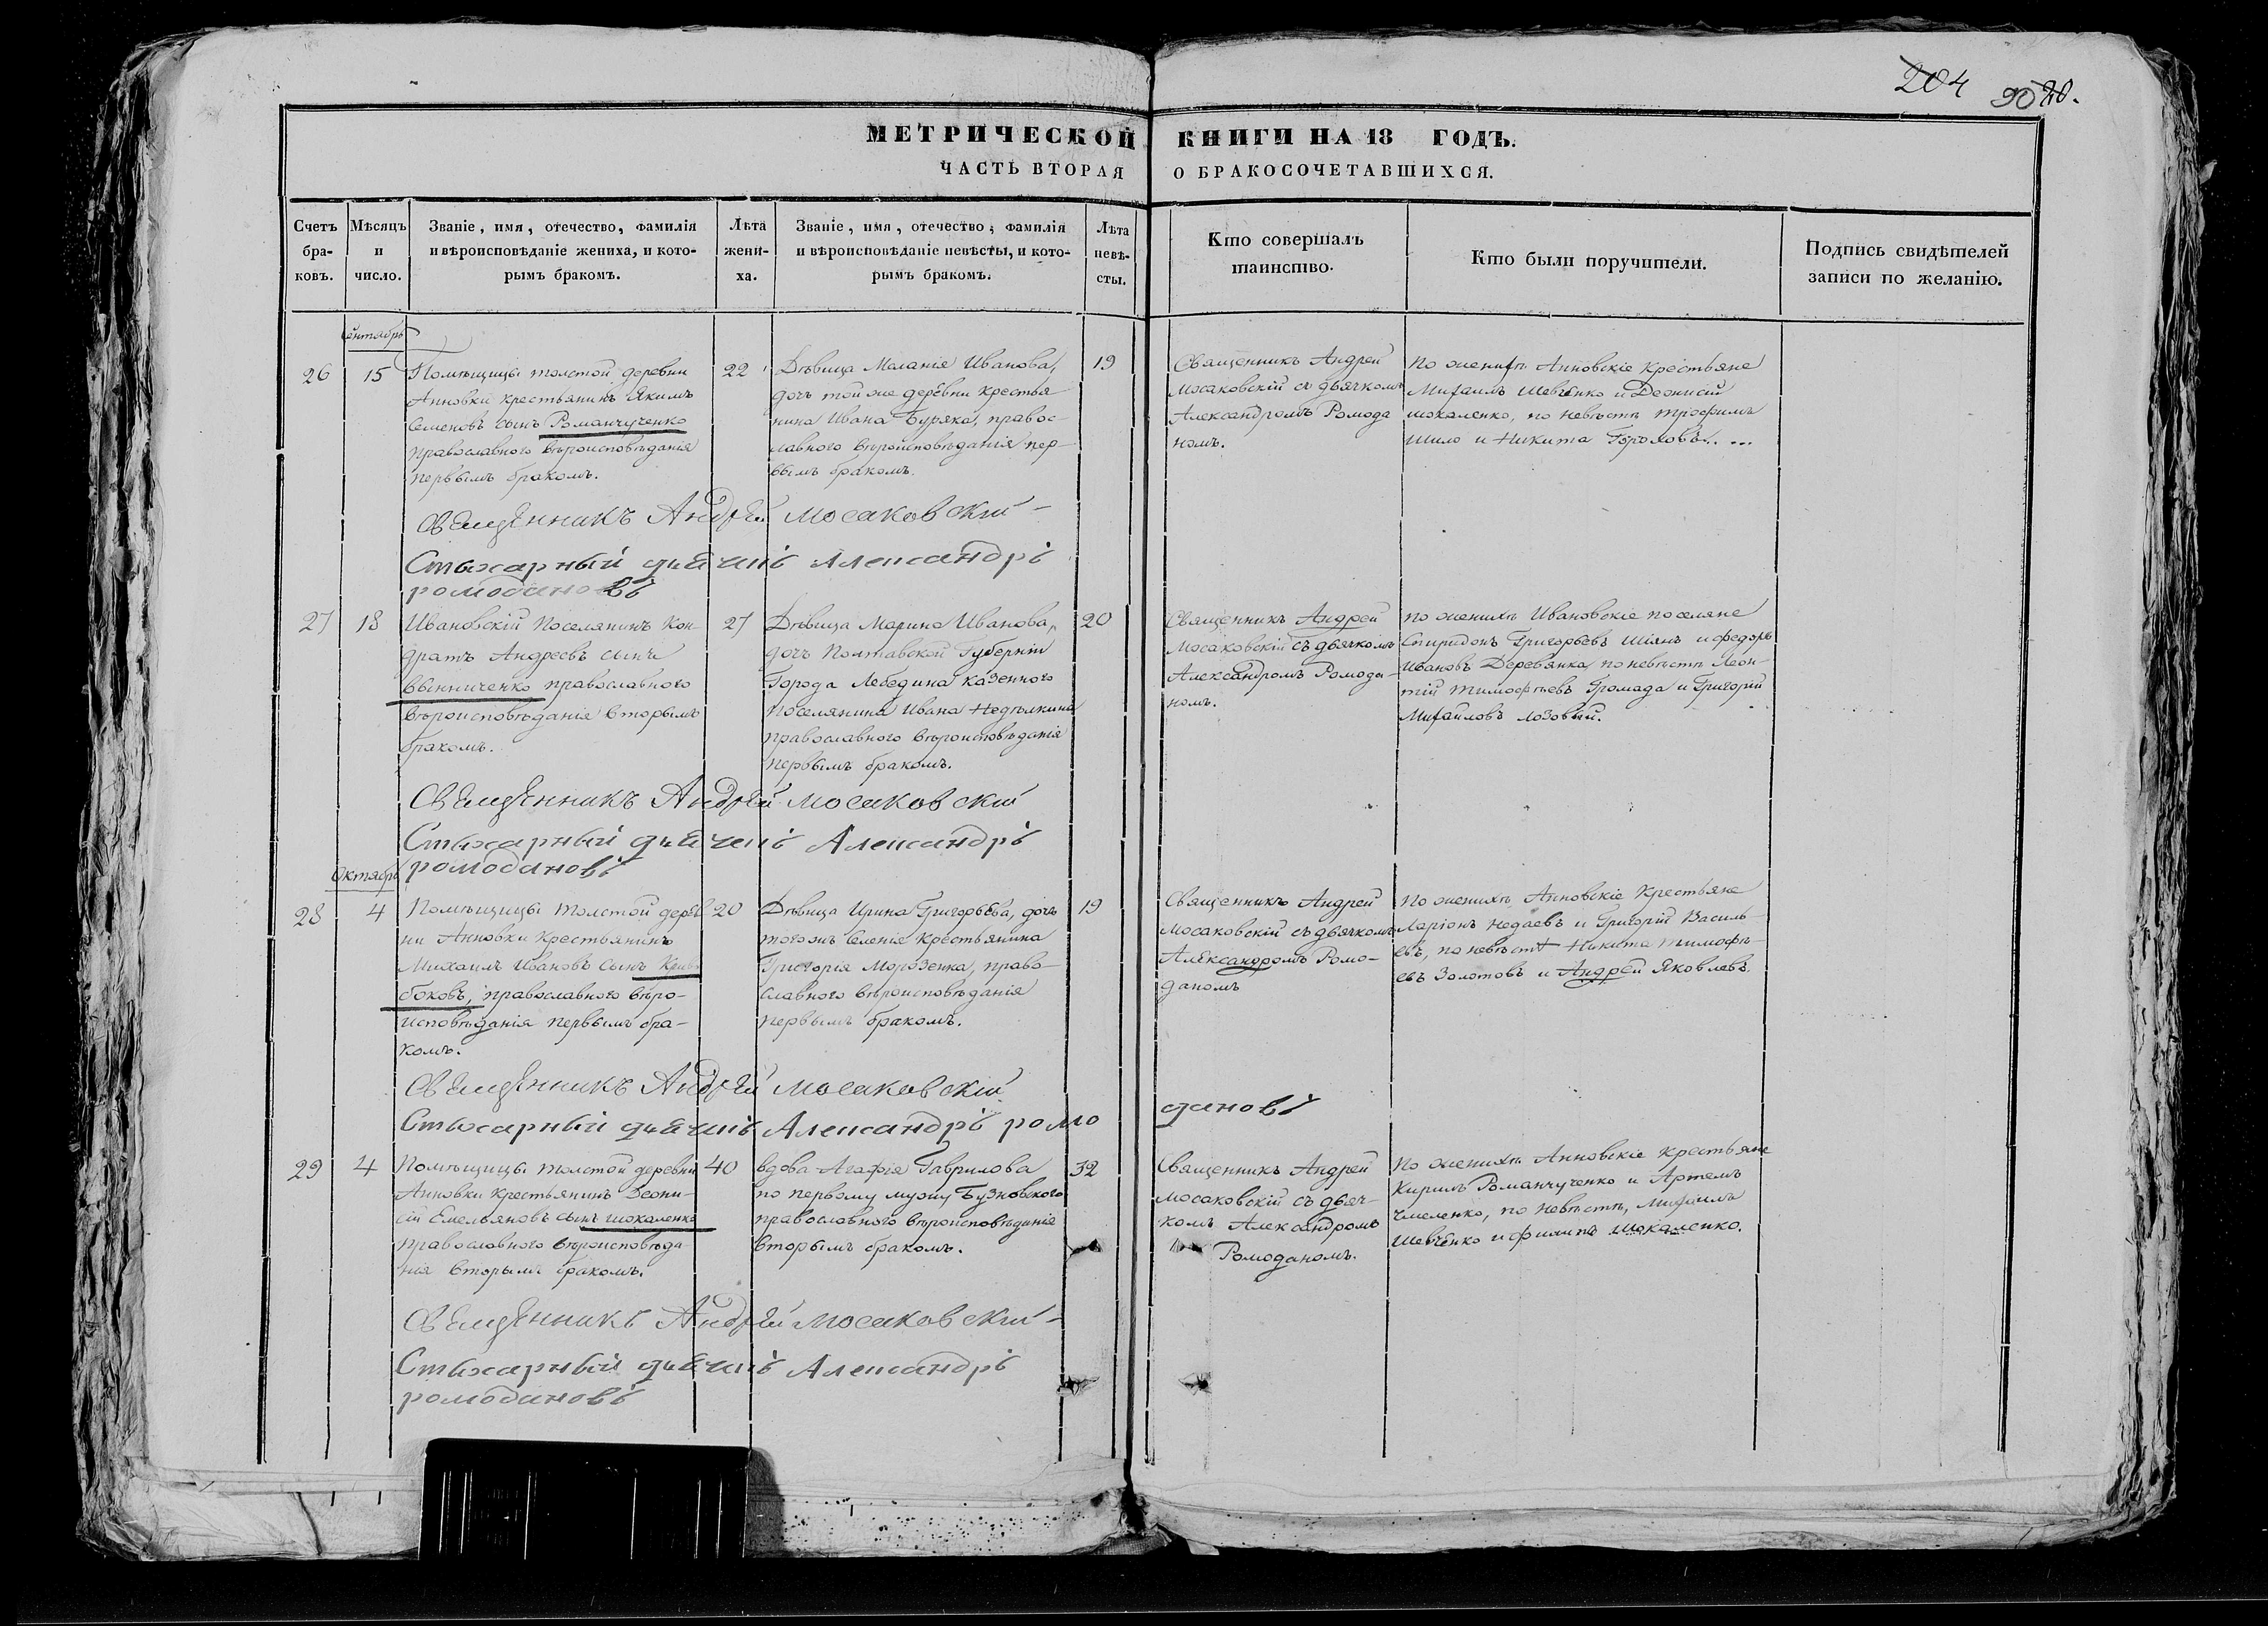 204 90 20.
МЕТРИЧЕСКОЙ КНИГИ НА 18 ГОДЪ.
ЧАСТЬ ВТОРАЯ О БРАКОСОЧЕТАВШИХСЯ.
Счетъ бра-ковъ.
Мѣсяцъ и число.
Званіе, имя, отечество, фамилія
и вѣроисповѣданіе жениха, и кото-
рымъ бракомъ.
Лѣта жени-ха.
Званіе, имя, отечество, фамилія
и вѣроисповѣданіе невѣсты, и кото-
рымъ бракомъ.
Лѣта невѣ-сты.
Кто совершалъ
таинство.
Кто были поручители.
Подпись свидѣтелей
записи по желанію.
Сентябрь
26
15
Помѣщицы Толстой деревни
Анновки крестьянинъ Якимъ
Семеновъ сынъ Романчученко
православного вѣроисповѣданія
первымъ бракомъ.
22
Дѣвица Маланія Иванова,
дочь той же деревни крестья
нина Ивана Буряка, правос-
лавного вѣроисповѣданія пер-
вымъ бракомъ.
19
Священникъ Андрей
Мосаковскій съ дьячкомъ
Александромъ Ромода
номъ.
По женихѣ Анновскіе крестьяне
Михаилъ Шевченко и Деонисій
Шокаленко, по невѣстѣ Трофимъ
Шило и Никита
Священникъ Андрей Мосаковскій
Стихарный дьячекъ Александръ
Ромодановъ
27
18
Ивановскій поселянинъ Кон-
дратъ Андреевъ сынъ
Винниченко православного
вѣроисповѣданія вторымъ
бракомъ.
27
Дѣвица Марина Иванова,
дочь Полтавской Губерніи
Города Лебедина казенного
поселянина Ивана Недѣлкина
православного вѣроисповѣданія
первымъ бракомъ.
20
Священникъ Андрей
Мосаковскій съ дьячкомъ
Александромъ Ромода-
номъ.
По женихѣ Ивановскіе поселяне
Спиридонъ Григорьевъ Шіянъ и Федоръ
Ивановъ Деревянка по невѣстѣ Леон-
тій Тимофѣевъ Громада и Григорій
Михайловъ Лозовый.
Священникъ Андрей Мосаковскій
Стихарный дьячекъ Александръ
Ромодановъ
Октябрь
28
4
Помѣщицы Толстой дерев
ни Анновки крестьянинъ
Михаилъ Ивановъ сынъ Криво
боковъ, православного вѣро-
исповѣданія первымъ бра-
комъ.
20
Дѣвица Ирина Григорьева, дочь
тогожъ селенія крестьянина
Григорія Морозенка, право-
славного вѣроисповѣданія
первымъ бракомъ.
19
Священникъ Андрей
Мосаковскій съ дьячкомъ
Александромъ Ромо-
даномъ
По женихѣ Анновскіе крестьяне
Ларіонъ Недаевъ и Григорій Василь-
евъ, по невѣстѣ Никита Тимофѣ-
евъ Золотовъ и Андрей Яковлевъ.
Священникъ Андрей Мосаковскій
Стихарный дьячекъ Александръ Ромо дановъ
29
4
Помѣщицы Толстой деревни
Анновки крестьянинъ Деони-
сій Емельяновъ сынъ Шокаленко
православного вѣроисповѣда
нія вторымъ бракомъ.
40
вдова Агафія Гаврилова
по первому мужу Бузновского
православного вѣроисповѣданія
вторымъ бракомъ.
32
Священникъ Андрей
Мосаковскій съ дьяч-
комъ Александромъ
Ромоданомъ.
По женихѣ Анновскіе крестьяне
Кирилъ Романчученко и Артемъ
Чмеленко, по невѣстѣ, Михаилъ
Шевченко и Филипъ Шокаленко.
Священникъ Андрей Мосаковскій
Стихарный дьячекъ Александръ
Ромодановъ